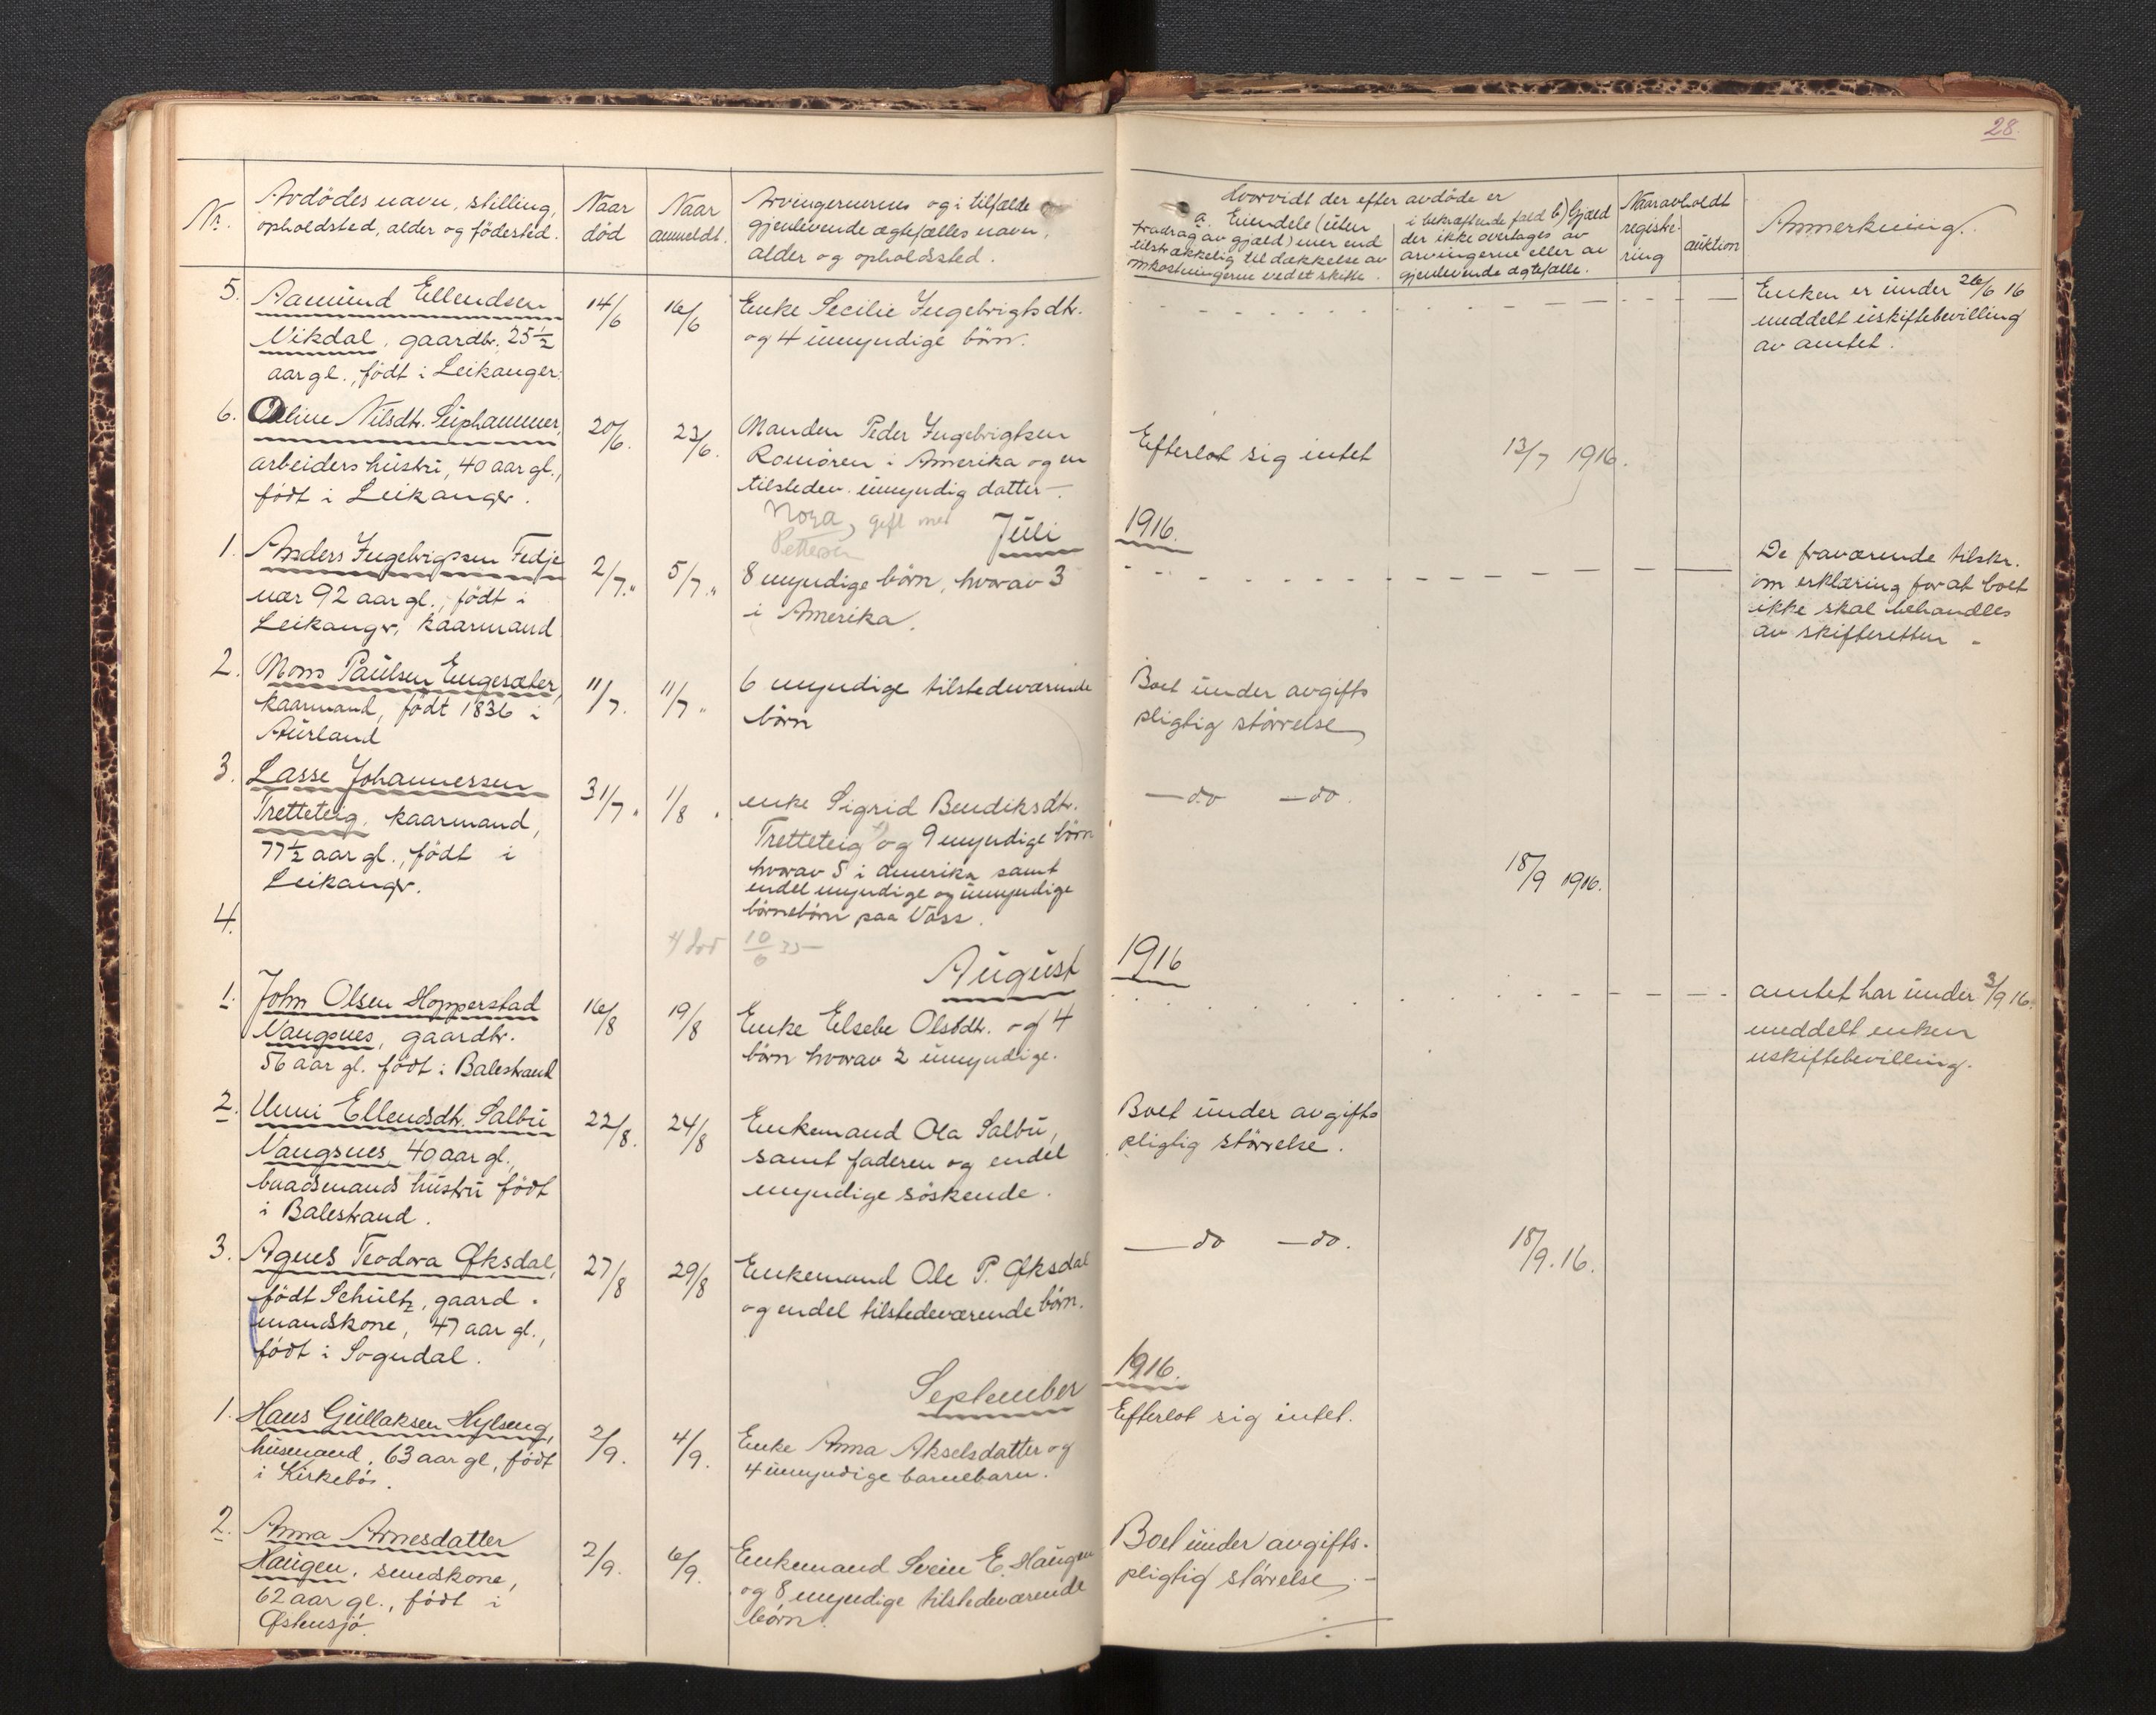 28.
Nr.
Avdödes navn, stilling,
opholdsted, alder og födested.
Naar
död
Naar
anmeldt.
Arvingernernes og i tilfælde
gjenlevende ægtefælles navn,
alder og opholdssted.
Hvorvidt der efter avdöde er
a. Eiendele (uten
fradrag av gjæld) mer end
tilstrækkelig til dækkelse av
omkostningerne ved et skifte.
i bekræftende fald b) Gjæld
der ikke overtages av
arvingerne eller av
gjenlevende ægtefælle.
Naar avholdt
registre-
ring
auktion
Anmerkning.
5.
Aamund Ellendsen
Vikdal, gaardbr. 25 1/2
aar gl., födt i Leikanger.
14/6
16/6
Enke Secilie Ingebrigtsdtr.
og 4 umyndige börn.
Enken er under 26/6 16
meddelt uskiftebevilling
av amtet.
6.
Oline Nilsdtr.
arbeiders hustru, 40 aar gl.,
födt i Leikanger.
20/6.
23/6.
Manden Peder Ingebrigtsen
Romören i Amerika og en
tilstedev. umyndig datter.
Nora, gift med
Pettersen
Efterlot sig intet
13/7 1916.
Juli
1916.
1.
Anders Ingebrigtsen Fedje
nær 92 aar gl., födt i
Leikanger, kaarmand
2/7.
5/7.
8 myndige börn, hvorav 3
i Amerika.
De fraværende tilskr.
om erklæring for at boet
ikke skal behandles
av skifteretten -
2.
Mons Paulsen Engesæter,
kaarmand, födt 1836 i
Aurland
11/7.
11/7.
6 myndige tilstedeværende
börn
Boet under avgifts
pligtig störrelse
3.
Lasse Johannessen
Tretteteig, kaarmand,
77 1/2 aar gl., födt i
Leikanger.
31/7.
1/8.
enke Sigrid Bendiksdtr.
Tretteteig og 9 myndige börn
hvorav 5 i Amerika samt
endel myndige og umyndige
börnebörn paa Voss.
— do — do.
18/9 1916.
4.
10/6 35
August
1916
1.
John Olsen Hopperstad
Vangsnes, gaardbr.
56 aar gl. födt i Balestrand
16/8
19/8
Enke Elsebe Olsdtr. og 4
börn hvorav 2 umyndige.
amtet har under 3/9 16.
meddelt enken
uskiftebevilling.
2.
Unni Ellendsdtr. Salbu
Vangsnes, 40 aar gl.,
buadsmands hustru födt
i Balestrand.
22/8.
24/8
Enkemand Ola Salbu,
samt faderen og endel
myndige söskende.
Boet under avgifts
pligtig störrelse.
3.
Agnes Teodora Øksdal,
födt Schultz, gaard-
mandskone, 47 aar gl.,
födt i Sogndal.
27/8
29/8
Enkemand Ole P. Øksdal
og endel tilstedeværende börn.
— do — do.
18/9. 16.
September
1916.
1.
Hans Gullaksen Hylseng,
husmand, 63 aar gl., födt
i Kirkebö.
2/9.
4/9.
Enke Anna Akselsdatter og
4 umyndige barnebarn.
Efterlot sig intet.
2.
Anna Arnesdatter
Haugen, smedskone,
62 aar gl., födt i
Østensjö.
2/9.
6/9.
Enkemand Svein E. Haugen
og 8 myndige tilstedeværende
börn.
Boet under avgifts-
pligtig störrelse. -